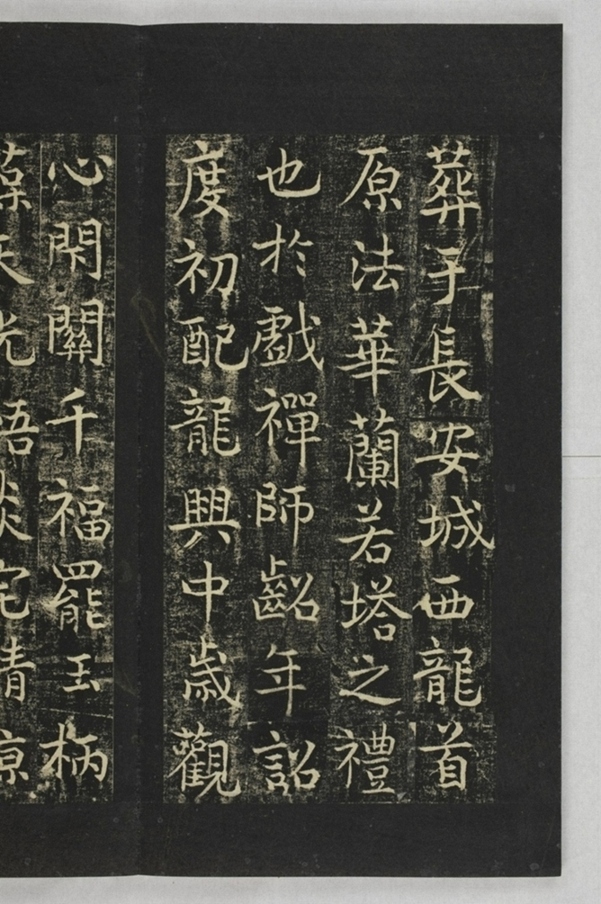 葬于長安城西龍首
原法華蘭若塔之禮
也於戲禪師齠年詔
度初配龍興中歲觀
心閇關千福罷玉柄
天光悟炎宅清